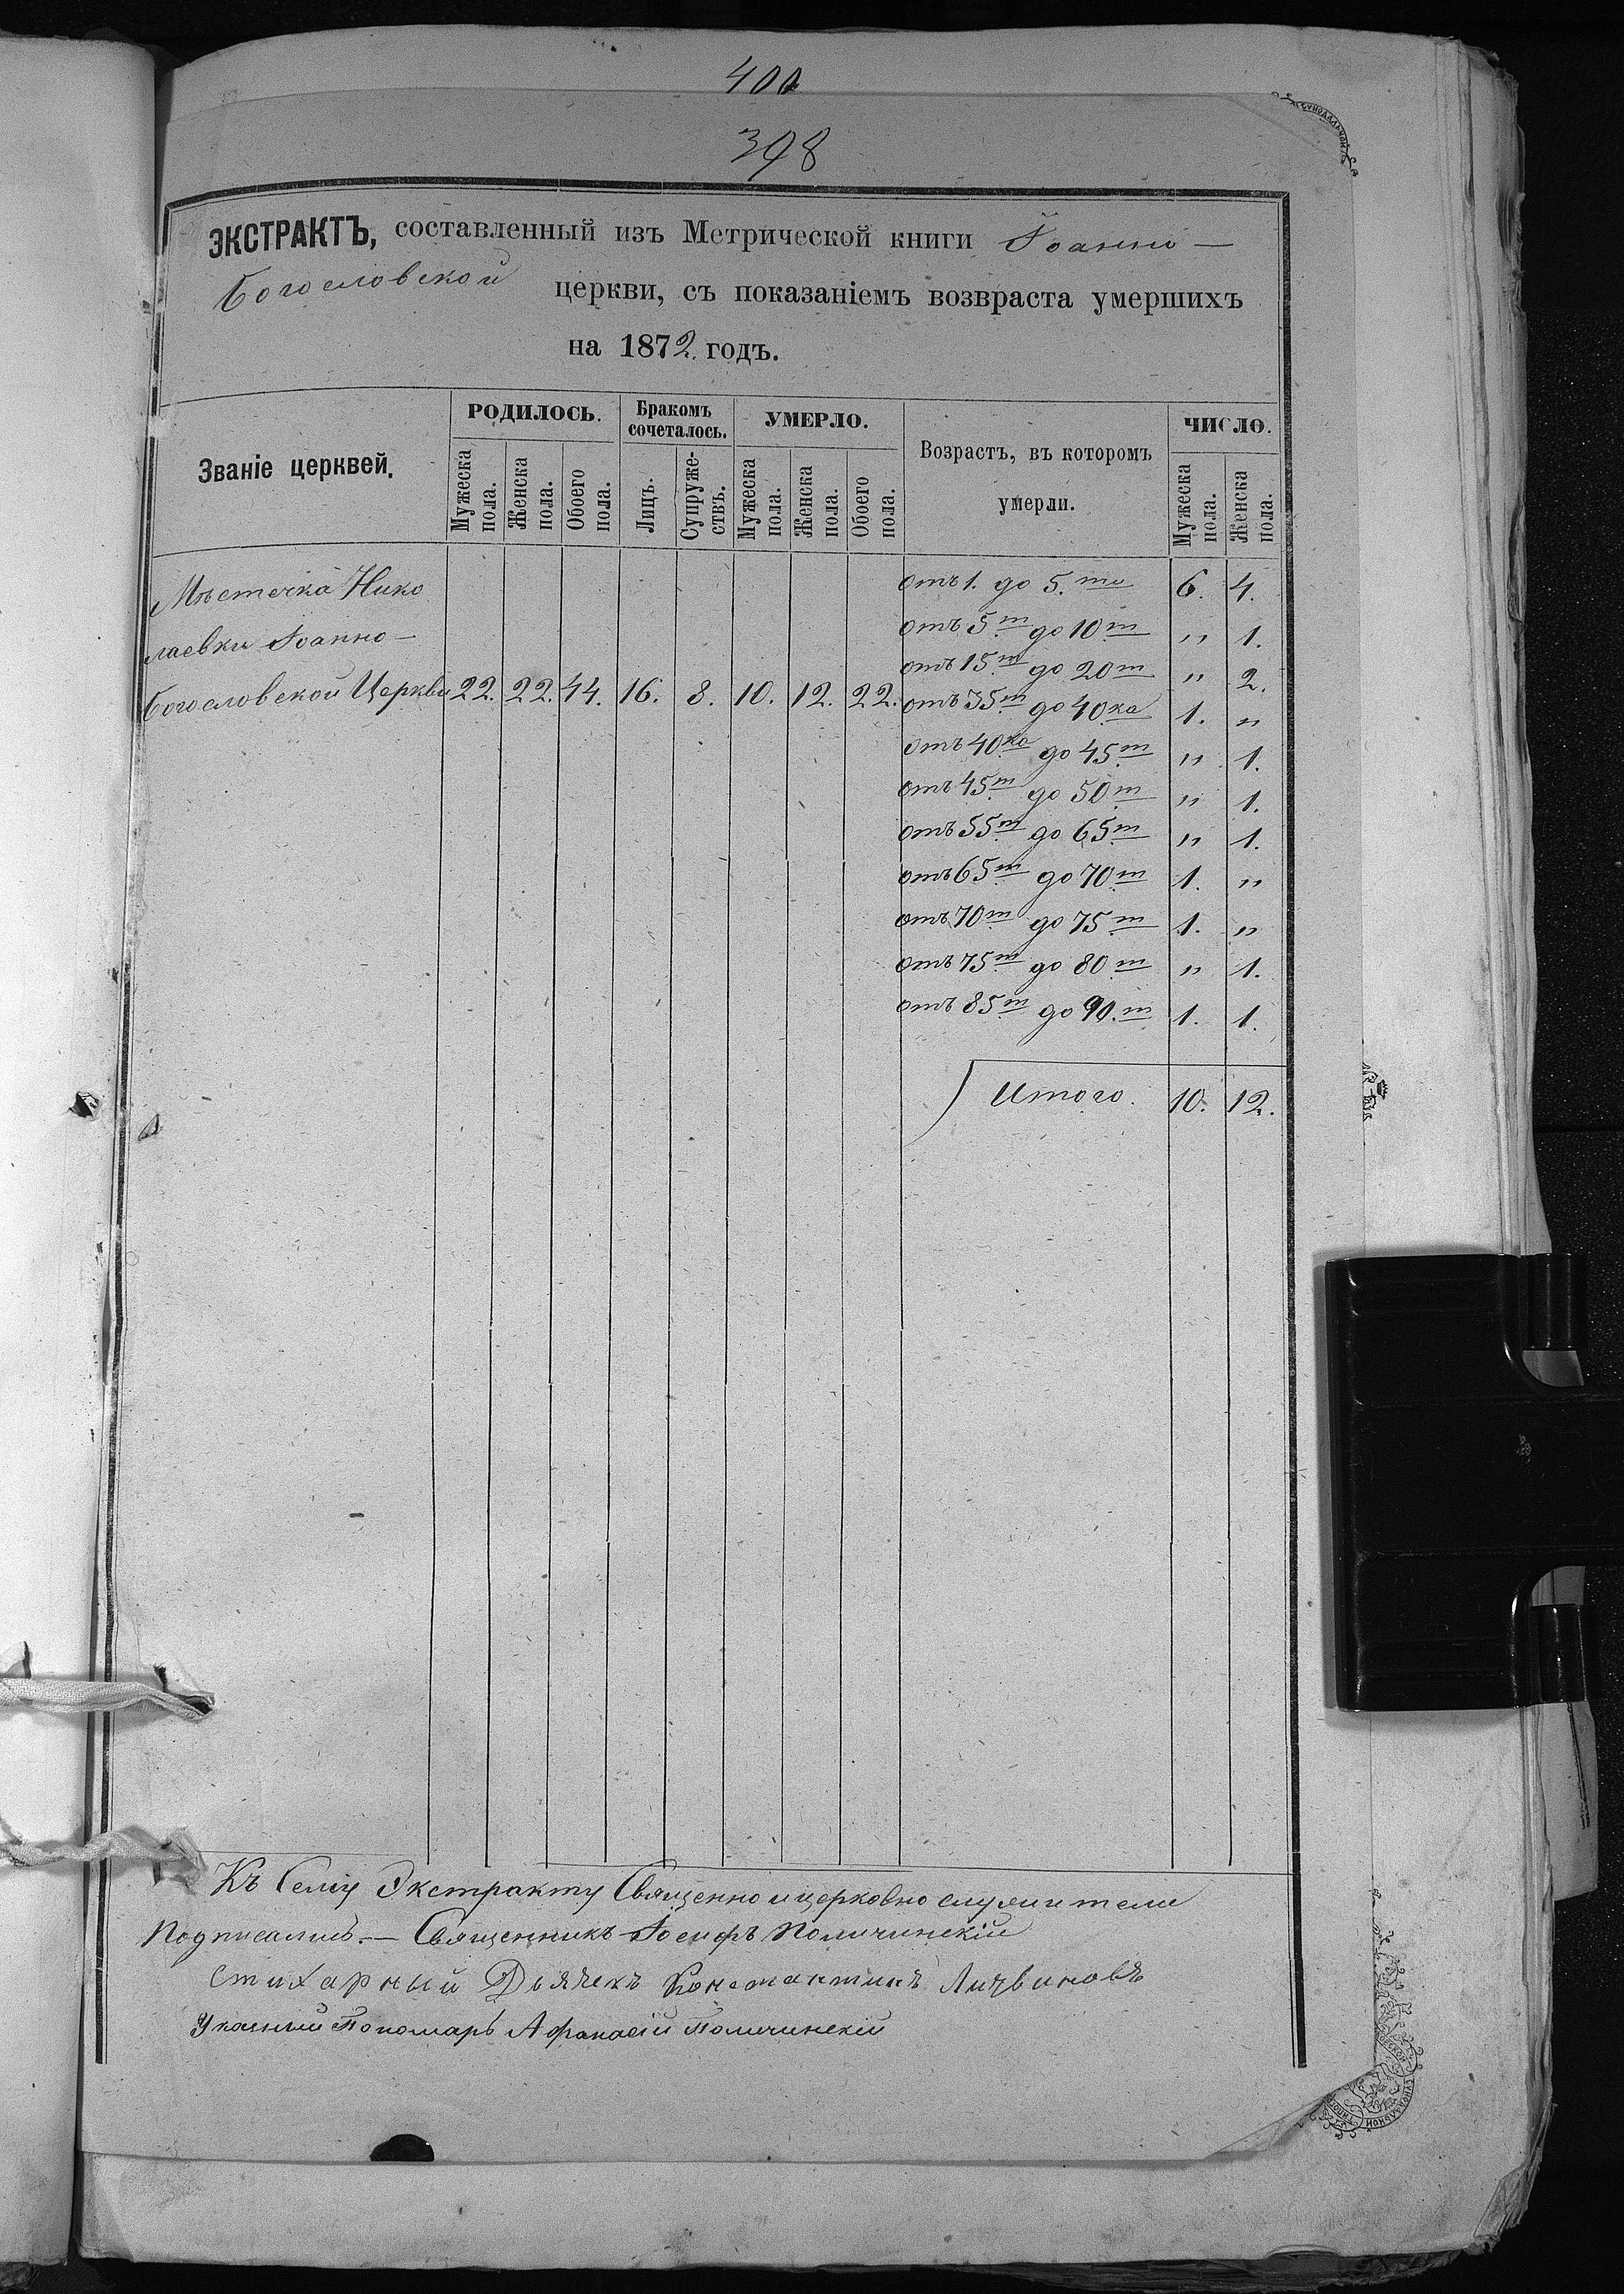 400
398
ЭКСТРАКТЪ, составленный изъ Метрической книги Іоанно-
Богословской церкви, съ показаніемъ возвраста умершихъ
на 1872 годъ.
Званіе церквей.
РОДИЛОСЬ. Бракомъ сочеталось. УМЕРЛО. Возрастъ, въ которомъ умерли. ЧИСЛО.
Мужеска пола. Женска пола. Обоего пола. Лицъ. Супружествъ. Мужеска пола. Женска пола. Обоего пола. Мужеска пола. Женска пола.
Мѣстечка Нико
лаевки Іоанно-
Богословской Церкви 22. 22. 44. 16. 8. 10. 12. 22.
отъ 1. до 5.ти 6. 4.
отъ 5.т до 10.т " 1.
отъ 15.т до 20т " 2.
отъ 35.т до 40.ка 1. "
отъ 40.ка до 45.т " 1.
отъ 45.т до 50.т " 1.
отъ 55.т до 65.т " 1.
отъ 65.т до 70.т 1. "
отъ 70т до 75.т 1. "
отъ 75.т до 80.т " 1.
отъ 85.т до 90.т 1. 1.
Итого. 10. 12.
Къ Сему Экстракту Священно и церковно служители
Подписались.— Священникъ Іосифъ
Стихарный Дьячекъ Константинъ Личвиновъ
Указный Пономарь Афанасій